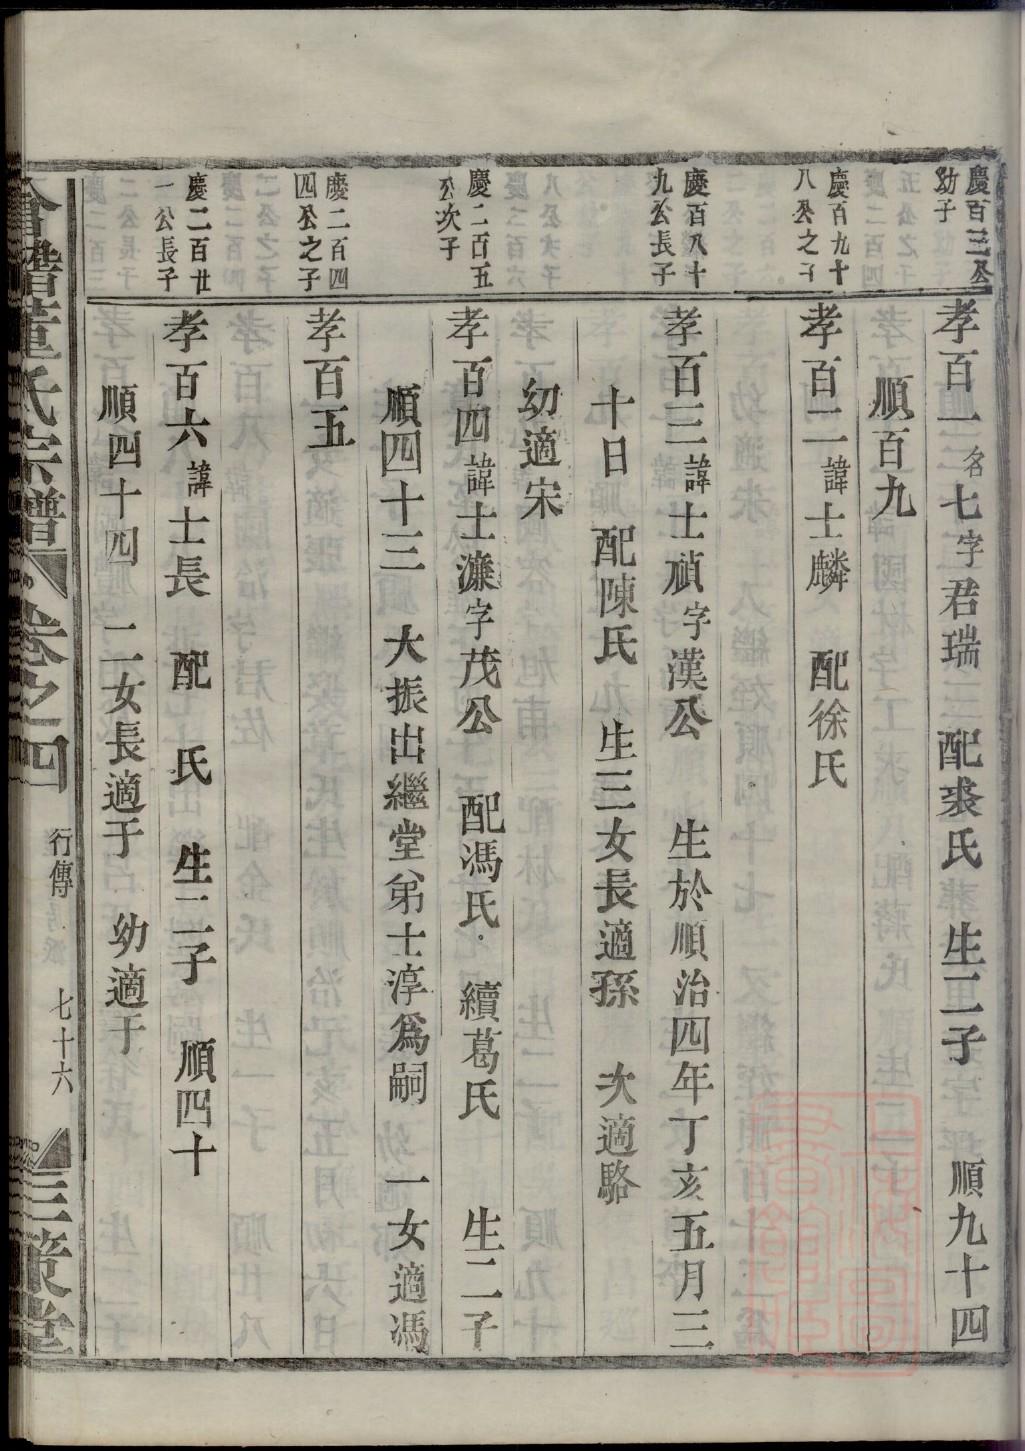 慶百三公
幼子
孝百一名七字君瑞三配裘氏 生二子 順九十四
順百九
慶百九十
八公之子
孝百二諱士麟 配徐氏
慶百八十
九公長子
孝百三諱士禎字漢公 生於順治四年丁亥五月三
十日 配陳氏 生三女長適孫 次適駱
幼適宋
慶二百五
公次子
孝百四諱士濂字茂公 配馮氏 續葛氏 生二子
順四十三 大振出繼堂弟士淳爲嗣 一女適馮
慶二百四
四公之子
孝百五
慶二百廿
一公長子
孝百六諱士長 配 氏 生二子 順四十
順四十四 二女長適于 幼適于
會稽董氏宗譜 卷之四 行傳 七十六 三策堂